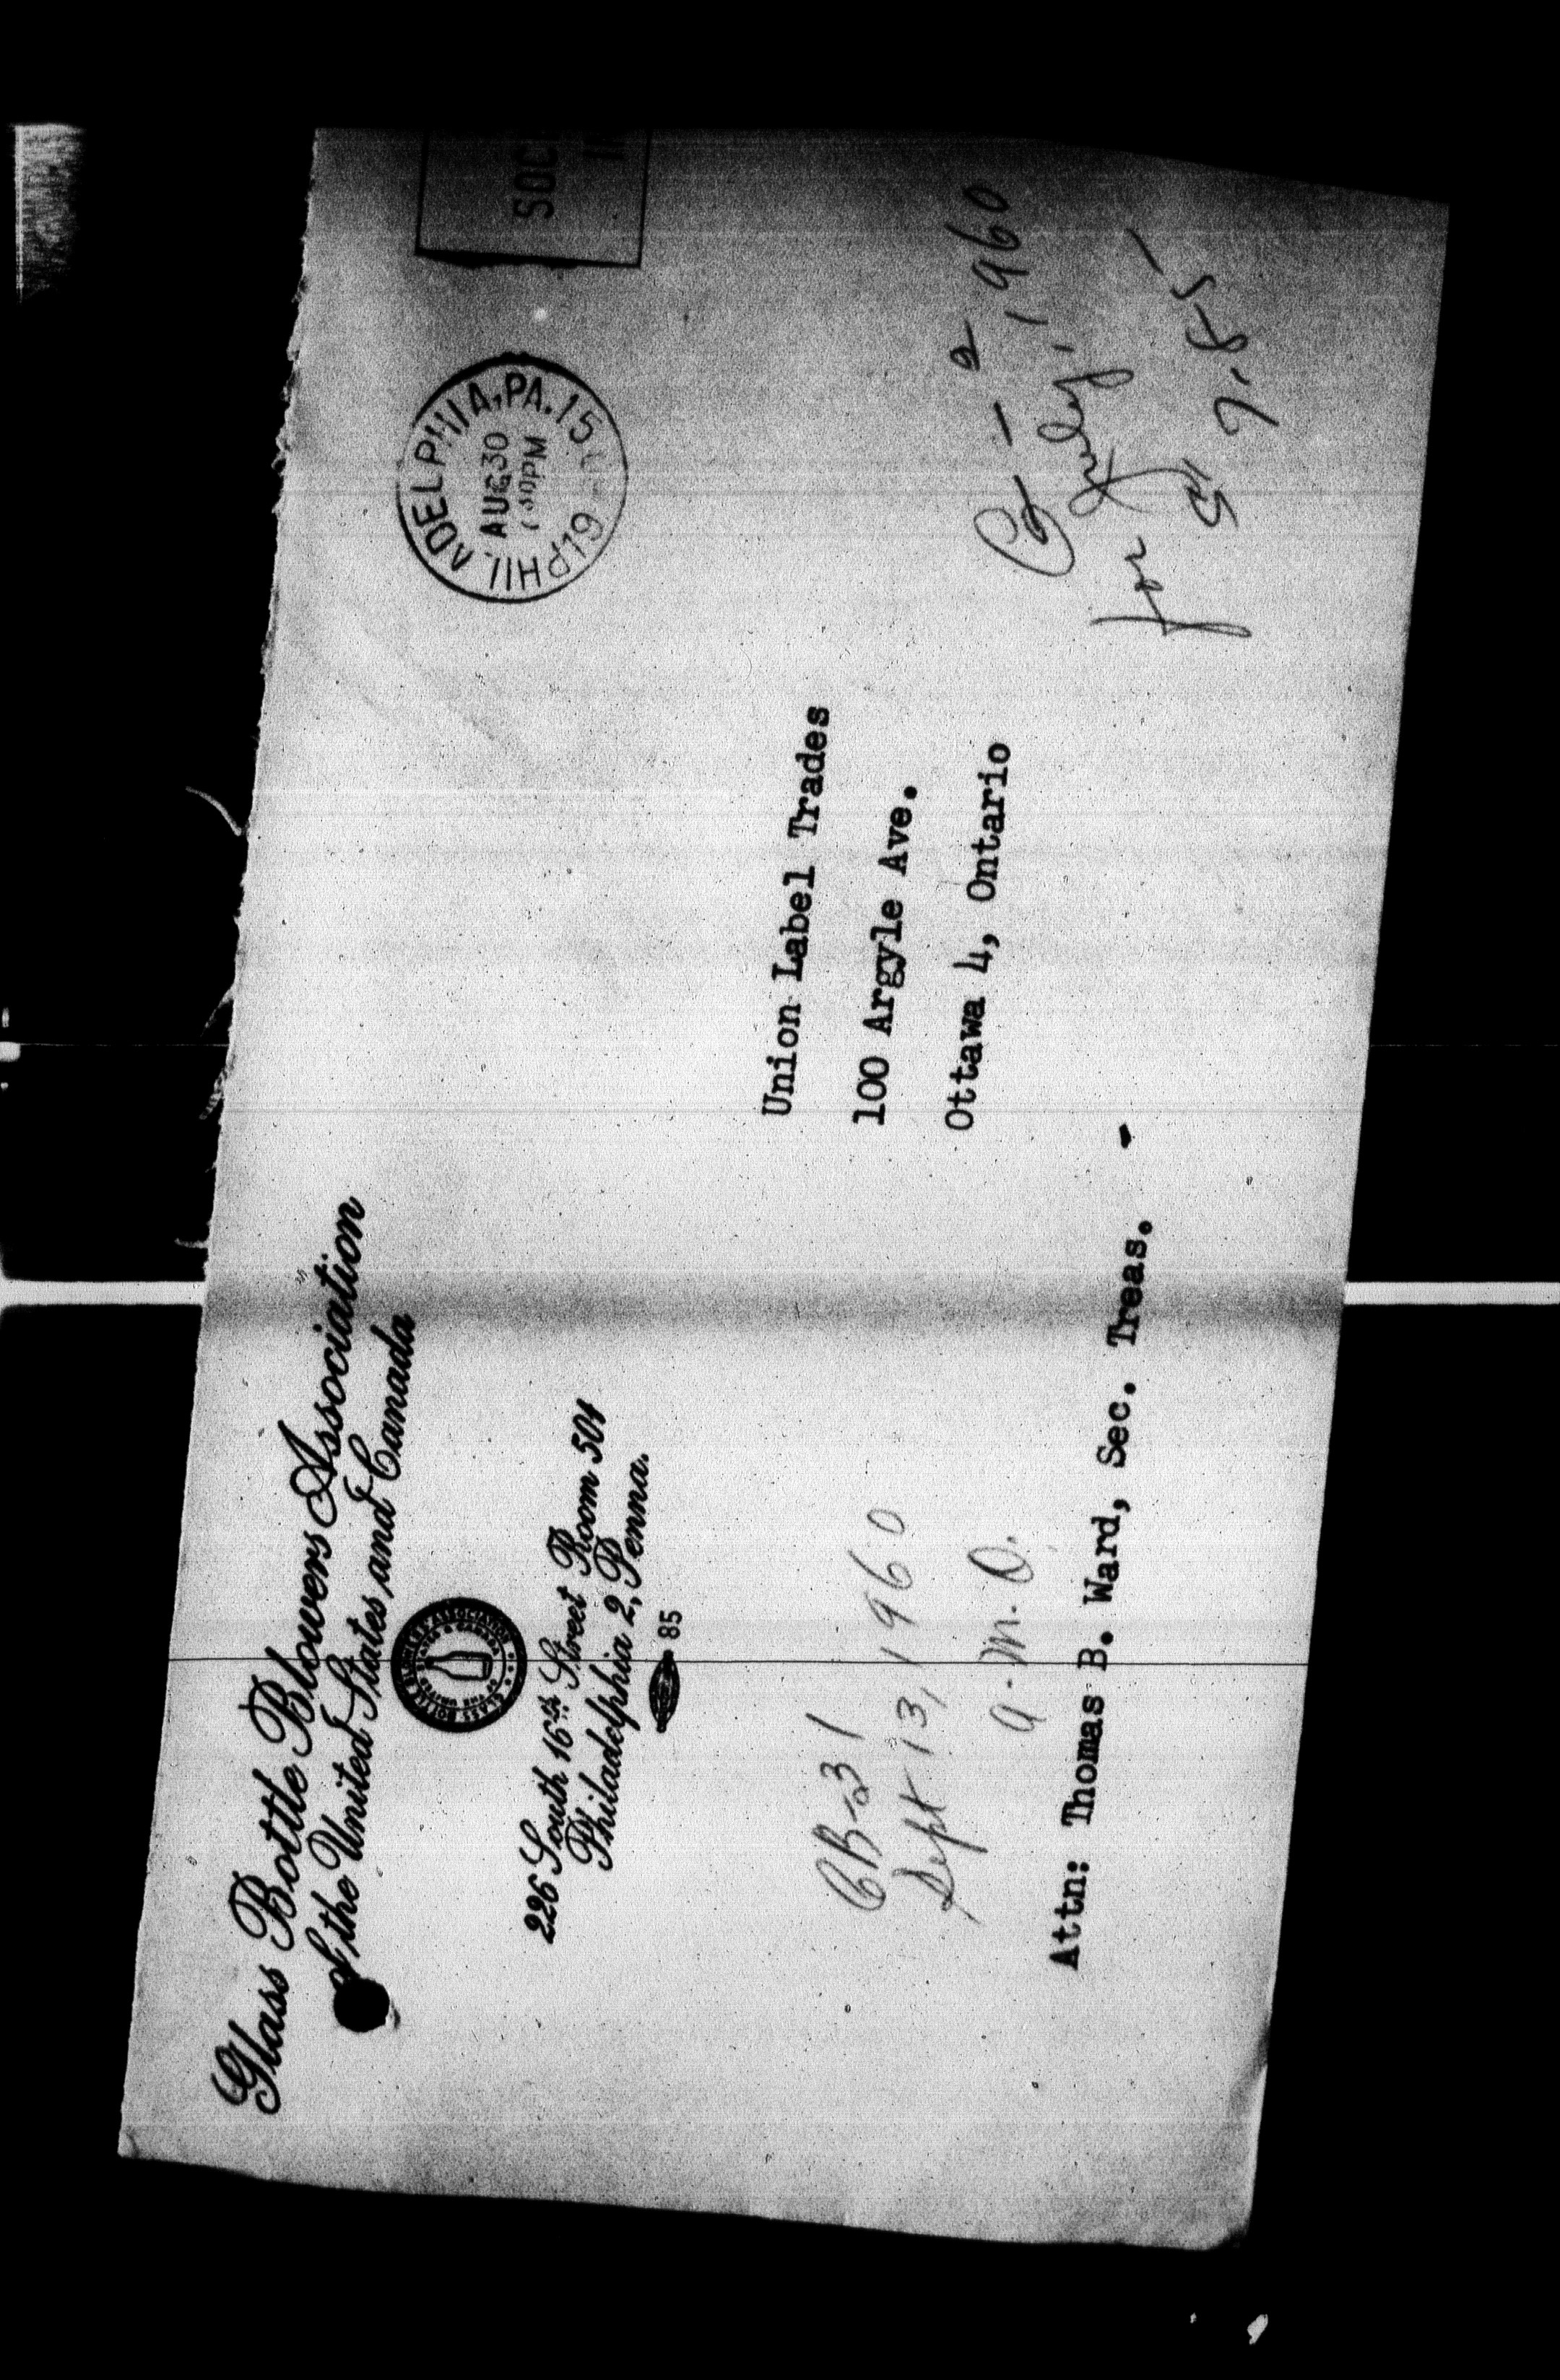 Glass Bottle Blowers Association
of the United States and Canada
GLASS BOTTLE BLOWERS ASSOCIATION
OF THE UNITED STATES & CANADA
226 South 16th Street Room 504
Philadelphia 2, Penna.
85
PHILADELPHIA, PA. 15
AUG 30
PM
19
SOC
Union Label Trades
100 Argyle Ave.
Ottawa 4, Ontario
for July, 1960
CB-31
Sept 13, 1960
a.m.D.
Attn: Thomas B. Ward, Sec. Treas.